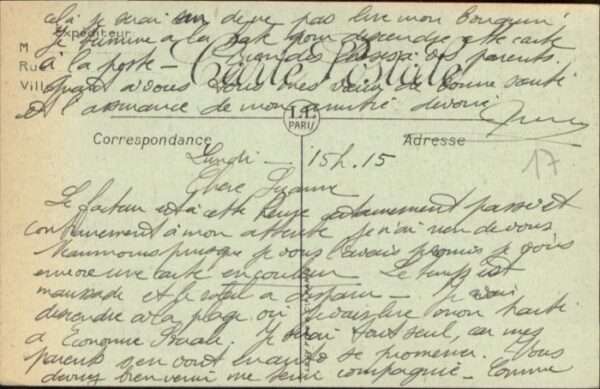 cela je serai sur de ne pas lire mon bouquin!
Je termine à la hâte pour descendre cette carte
à la poste — Grandes bises à vos parents.
Quant à vous tous mes vœux de bonne santé
et l'assurance de mon amitié dévouée
Expéditeur
M
Rue
Ville
Carte Postale
LL
PARIS
Correspondance
Adresse
17
Lundi — 15h.15
Chère Suzanne
Le facteur est à cette heure certainement passé et
contrairement à mon attente je n'ai rien de vous.
Néanmoins puisque je vous l'avais promis je vous
envoie une carte en couleur. Le temps est
maussade et le soleil a disparu — Je vais
descendre à la plage où je vais lire mon traité
d'Economie Rurale. Je serai tout seul, car mes
parents s'en vont ensuite se promener. Vous
devriez bien venir me tenir compagnie — Comme